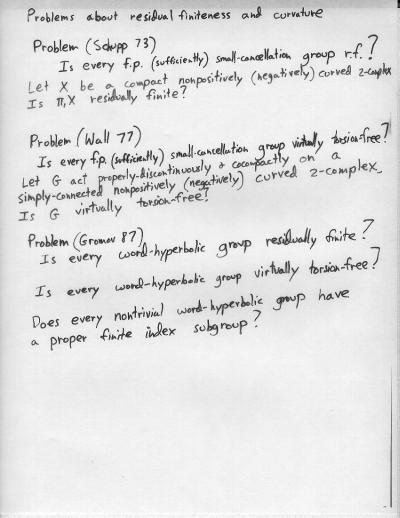 Problems about residual finiteness and curvature
Problem (Schupp 73)
Is every f.p. (sufficiently) small-cancellation group r.f.?
Let X be a compact nonpositively (negatively) curved 2-complex
Is π₁X residually finite?
Problem (Wall 77)
Is every f.p. (sufficiently) small-cancellation group virtually torsion-free?
Let G act properly-discontinuously & cocompactly on a
simply-connected nonpositively (negatively) curved 2-complex.
Is G virtually torsion-free?
Problem (Gromov 87)
Is every word-hyperbolic group residually finite?
Is every word-hyperbolic group virtually torsion-free?
Does every nontrivial word-hyperbolic group have
a proper finite index subgroup?